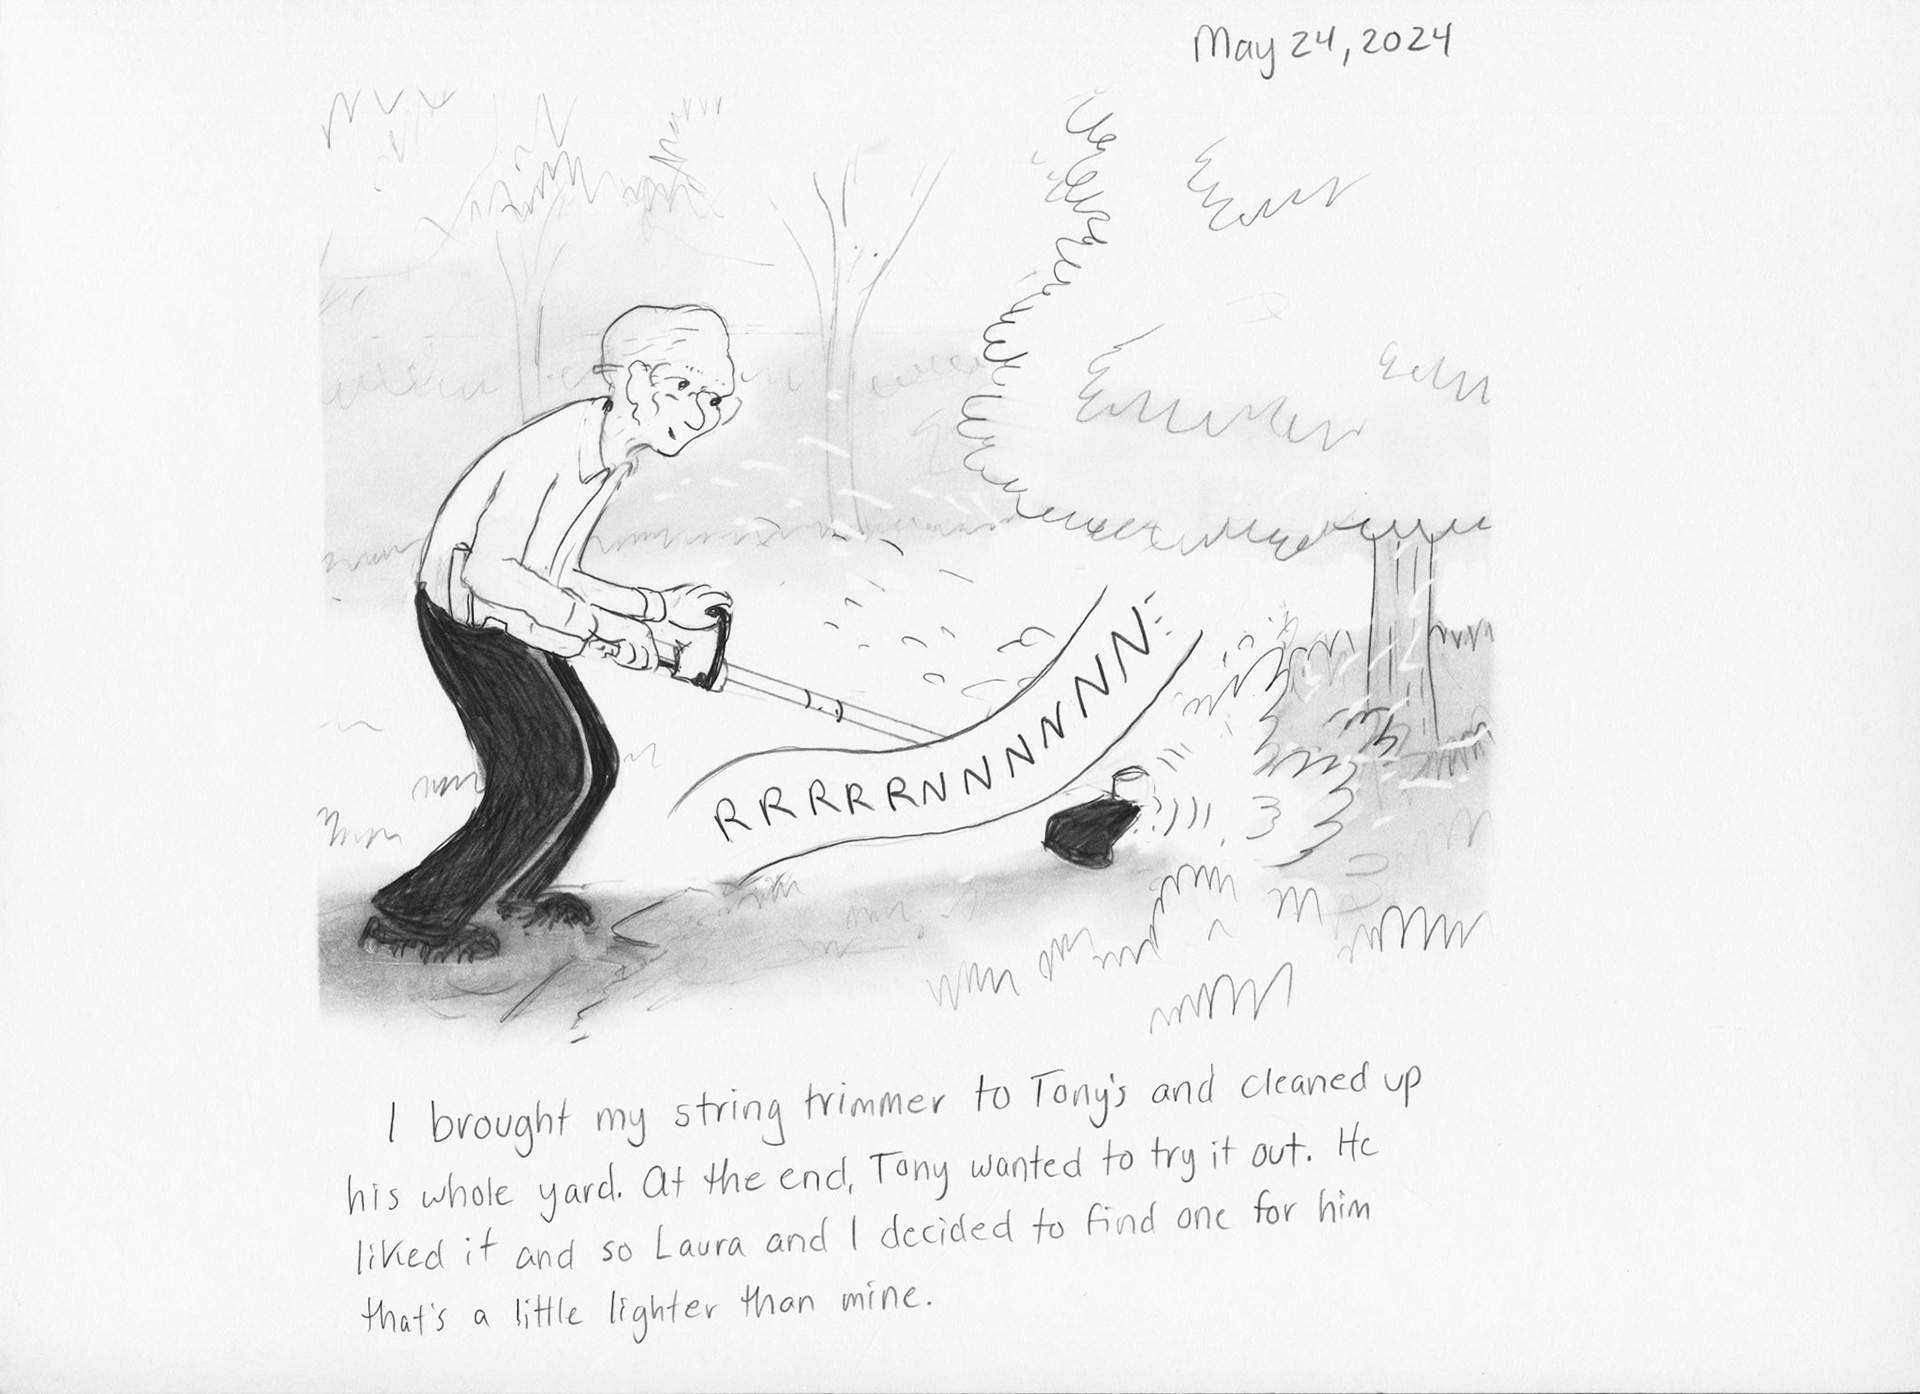 May 24, 2024
RRRRRNNNNNNN
I brought my string trimmer to Tony's and cleaned up
his whole yard. At the end, Tony wanted to try it out. He
liked it and so Laura and I decided to find one for him
that's a little lighter than mine.